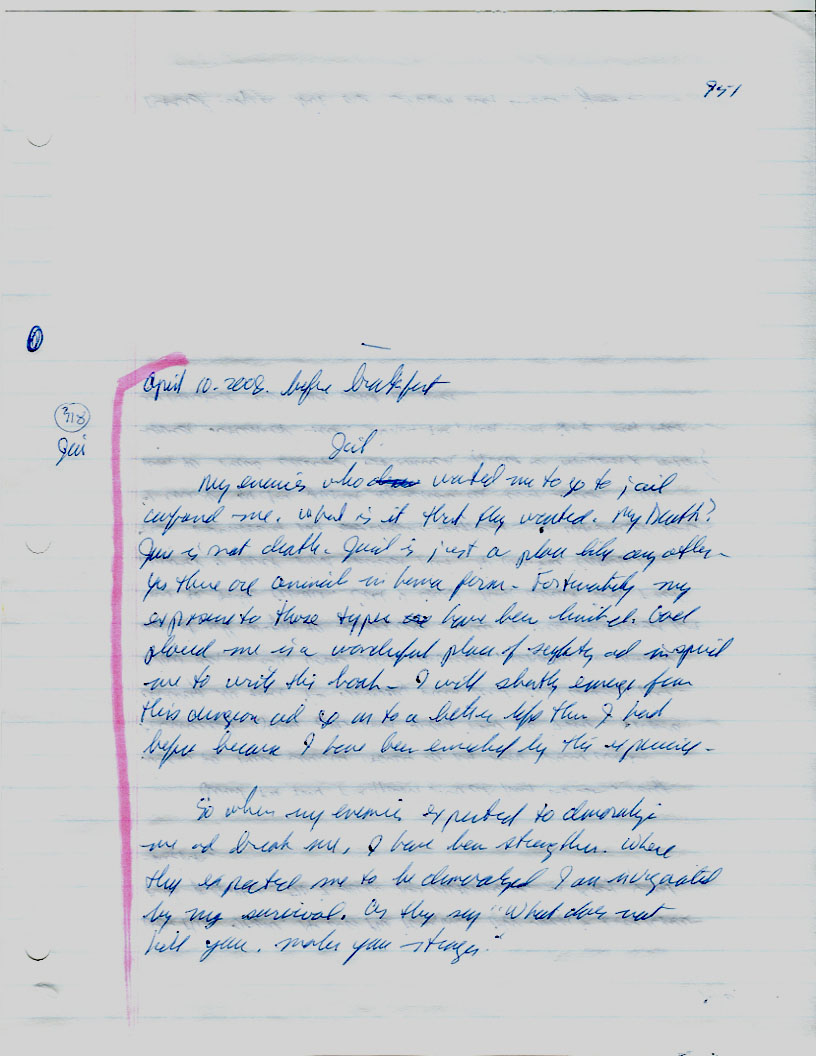 951
April 10. 2008. before breakfast
718
Jail
Jail.
My enemies who wanted me to go to jail
me. What is it that they wanted. My Death?
Jail is not death. Jail is just a place like any other -
Yes there are animals in human form - Fortunately my
exposure to those types have been limited. God
placed me in a wonderful place of safety and inspired
me to write this book - I will shortly emerge from
this dungeon and go on to a better life than I had
before because I have been enriched by this experience -
So when my enemies expected to demoralize
me and break me, I have been strengthen. Where
they expected me to be demoralized I am invigorated
by my survival. As they say "What does not
kill you. makes you stronger."